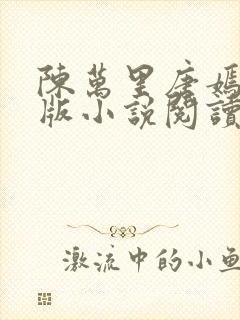 陳萬里唐嫣
版小說閱讀
激流中的小魚